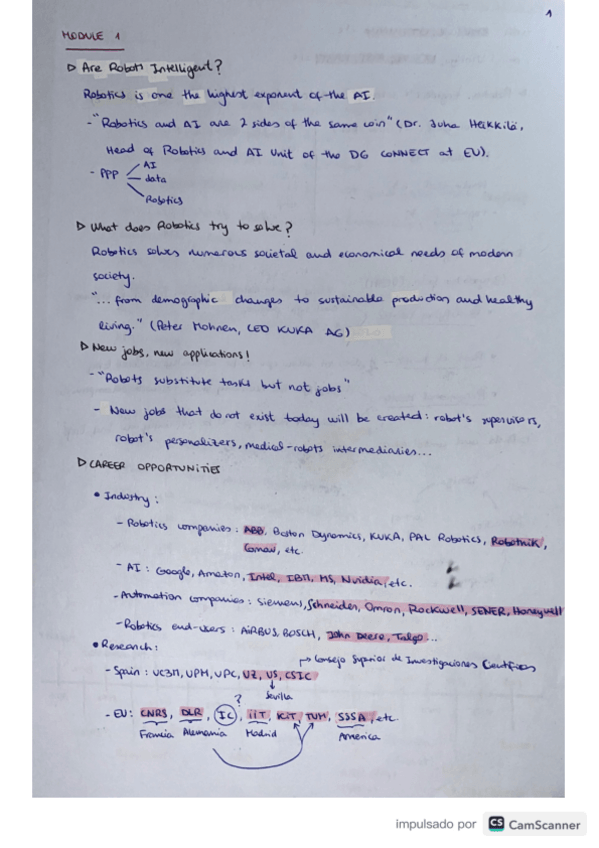 1
MODULE 1
▷ Are Robots Intelligent?
Robotics is one the highest exponent of the AI.
- "Robotics and AI are 2 sides of the same coin" (Dr. Juha Heikkilä,
Head of Robotics and AI Unit of the DG CONNECT at EU).
- PPP
AI
data
Robotics
▷ What does Robotics try to solve?
Robotics solves numerous societal and economical needs of modern
society.
"... from demographic changes to sustainable production and healthy
living." (Peter Mohnen, CEO KUKA AG)
▷ New jobs, new applications!
- "Robots substitute tasks but not jobs"
- New jobs that do not exist today will be created: robot's supervisors,
robot's personalizers, medical-robots intermediaries...
▷ CAREER OPPORTUNITIES
• Industry:
- Robotics companies: ABB, Boston Dynamics, KUKA, PAL Robotics, Robotnik,
Comau, etc.
- AI: Google, Amazon, Intel, IBM, MS, Nvidia, etc.
- Automation companies: Siemens, Schneider, Omron, Rockwell, SENER, Honeywell
- Robotics end-users: AIRBUS, BOSCH, John Deere, Talgo...
• Research:
→ Consejo Superior de Investigaciones Científicas
- Spain: UC3M, UPM, UPC, UZ, US, CSIC
Sevilla
?
- EU: CNRS, DLR, IC, IIT, KIT, TUM, SSSA, etc
Francia Alemania Madrid America
impulsado por CS CamScanner